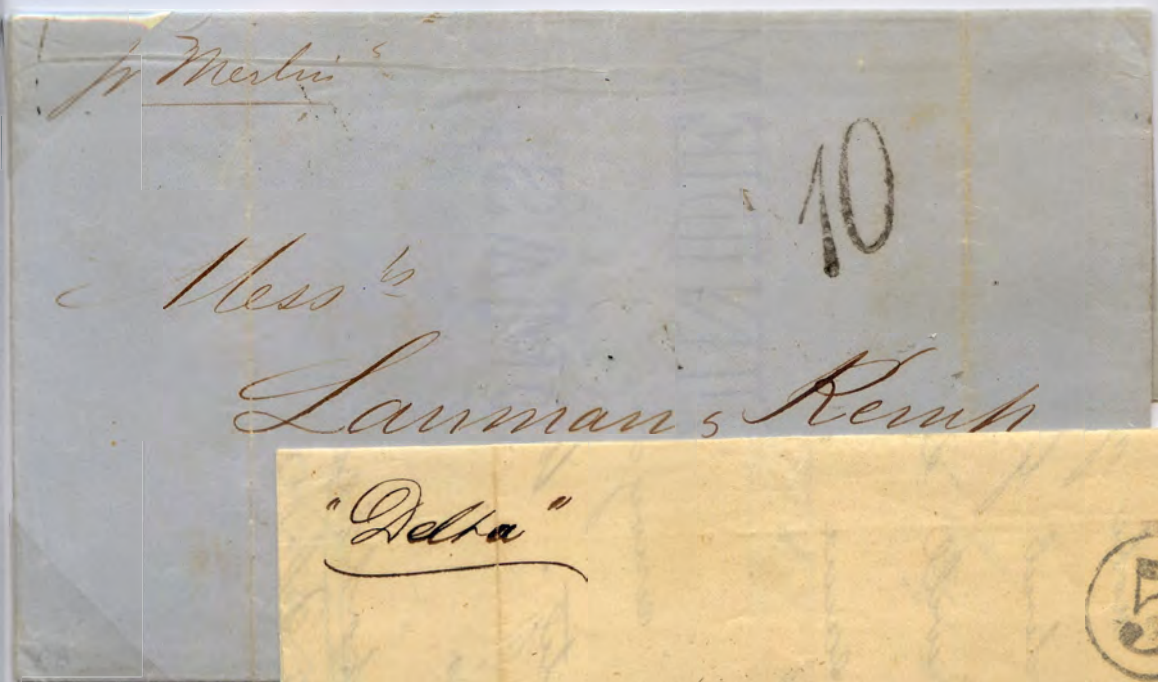 pr Merlin
10
Mess rs
Lanman & Kemp
"Delta"
5